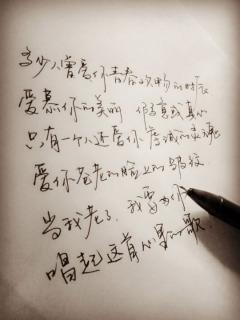 多少人曾爱你青春欢畅的时辰
爱慕你的美丽 假意或真心
只有一个人还爱你虔诚的灵魂
爱你苍老的脸上的皱纹
当我老了，我要为你
唱起这首心里的歌